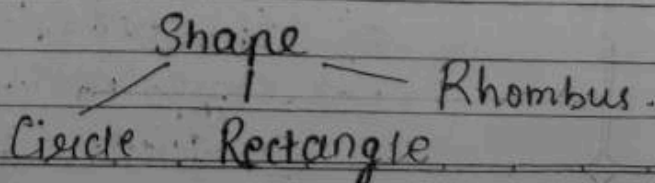 Shape
Rhombus.
Circle Rectangle